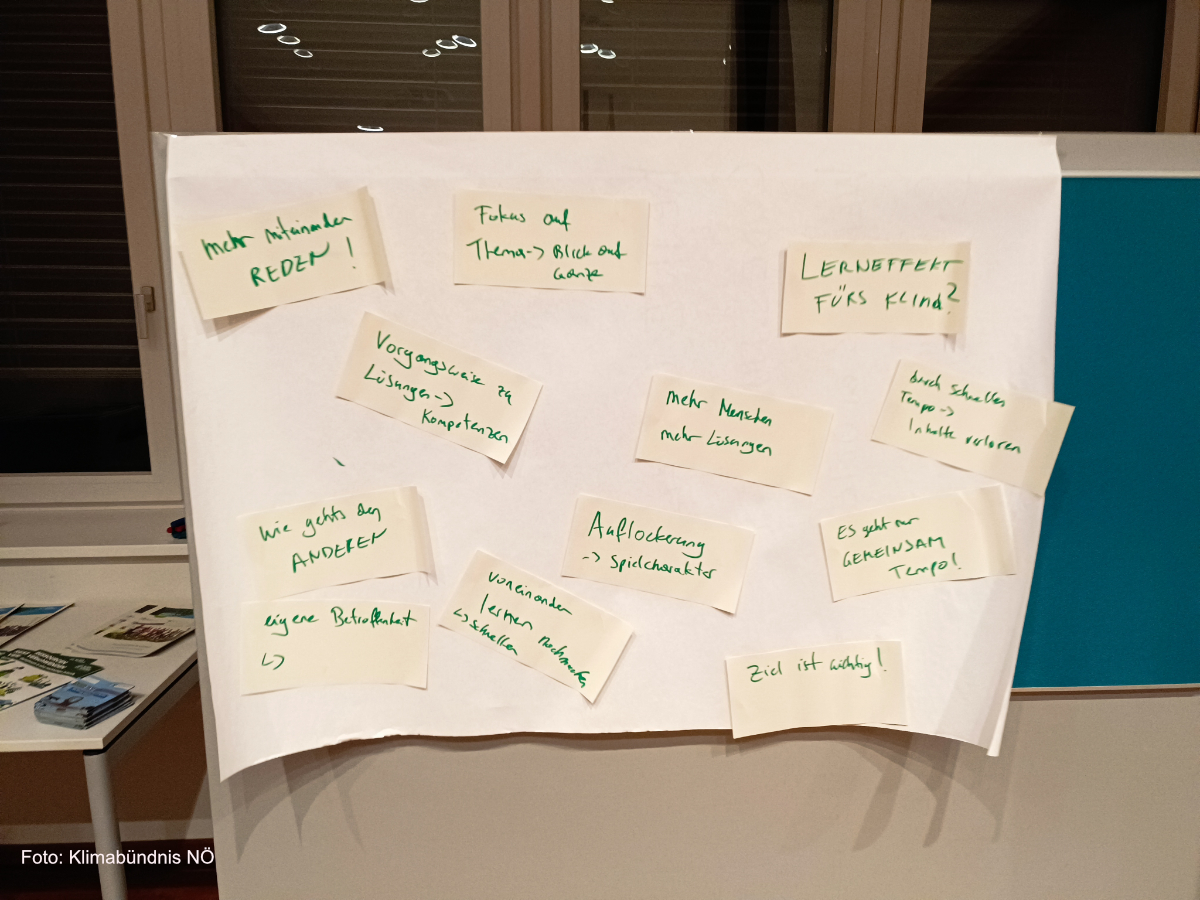 mehr miteinander
REDEN!
Fokus auf
Thema -> Blick auf
Ganze
LERNEFFEKT
FÜRS KLIMA?
Vorgangsweise zu
Lösungen ->
Kompetenzen
mehr Menschen
mehr Lösungen
durch schnelles
Tempo ->
Inhalte verloren
Wie gehts den
ANDEREN
Auflockerung
-> Spielcharakter
ES geht nur
GEMEINSAM
Tempo!
eigene Betroffenheit
↳
voneinander
lernen nachmachen
↳ schneller
Ziel ist wichtig!
Foto: Klimabündnis NÖ